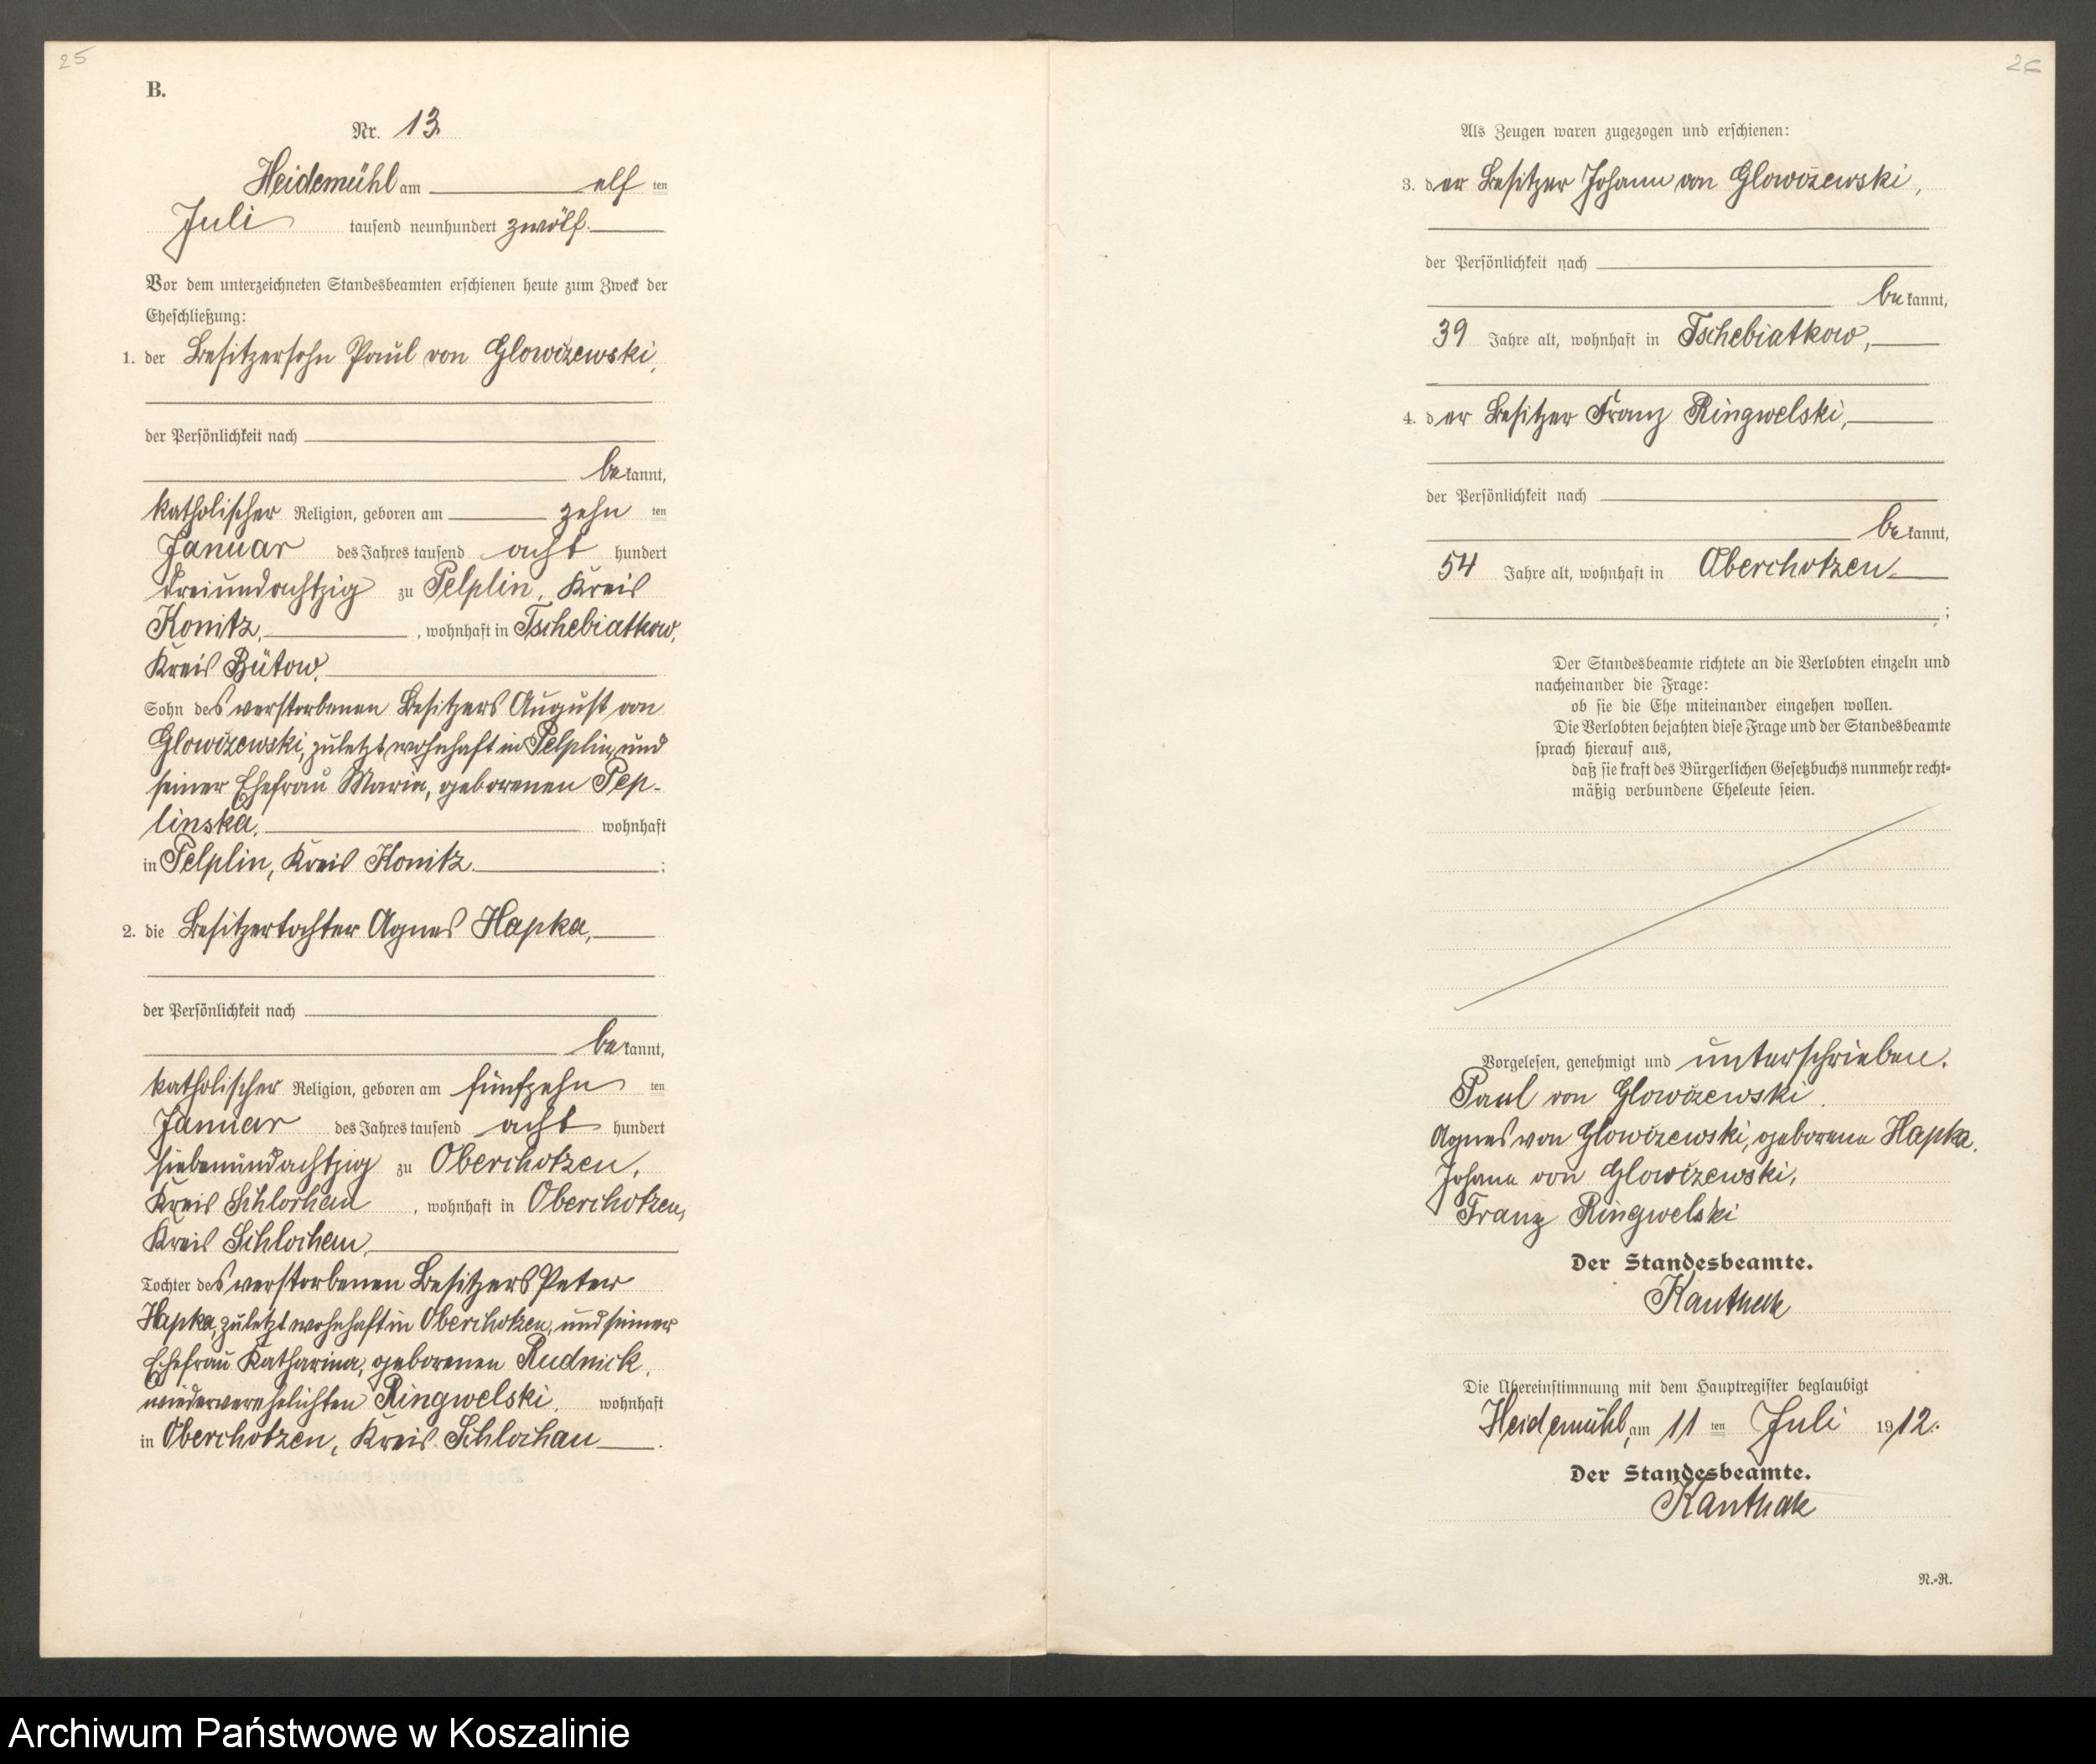 25
B.
Nr. 13.
Heidemühl am elf ten
Juli tausend neunhundert zwölf.
Vor dem unterzeichneten Standesbeamten erschienen heute zum Zweck der
Eheschließung:
1. der Besitzersohn Paul von Glowczewski,
der Persönlichkeit nach
bekannt,
katholischer Religion, geboren am zehn ten
Januar des Jahres tausend acht hundert
dreiundachtzig zu Pelplin, Kreis
Konitz, , wohnhaft in Tschebiatkow,
Kreis Bütow.
Sohn des verstorbenen Besitzers August von
Glowczewski, zuletzt wohnhaft in Pelplin, und
seiner Ehefrau Maria, geborenen Pep-
linska, wohnhaft
in Pelplin, Kreis Konitz ;
2. die Besitzertochter Agnes Hapka,
der Persönlichkeit nach
bekannt,
katholischer Religion, geboren am fünfzehn ten
Januar des Jahres tausend acht hundert
siebenundachtzig zu Oberchotzen,
Kreis Schlochau , wohnhaft in Oberchotzen,
Kreis Schlochau,
Tochter des verstorbenen Besitzers Peter
Hapka, zuletzt wohnhaft in Oberchotzen, und seiner
Ehefrau Katharina, geborenen Rudnick,
wiederverehelichten Ringwelski, wohnhaft
in Oberchotzen, Kreis Schlochau .
26
Als Zeugen waren zugezogen und erschienen:
3. der Besitzer Johann von Glowczewski,
der Persönlichkeit nach
bekannt,
39 Jahre alt, wohnhaft in Tschebiatkow,
4. der Besitzer Franz Ringwelski,
der Persönlichkeit nach
bekannt,
54 Jahre alt, wohnhaft in Oberchotzen
;
Der Standesbeamte richtete an die Verlobten einzeln und
nacheinander die Frage:
ob sie die Ehe miteinander eingehen wollen.
Die Verlobten bejahten diese Frage und der Standesbeamte
sprach hierauf aus,
daß sie kraft des Bürgerlichen Gesetzbuchs nunmehr recht-
mäßig verbundene Eheleute seien.
Vorgelesen, genehmigt und unterschrieben.
Paul von Glowczewski.
Agnes von Glowczewski, geborene Hapka.
Johann von Glowczewski,
Franz Ringwelski
Der Standesbeamte.
Kanthak
Die Übereinstimmung mit dem Hauptregister beglaubigt
Heidemühl, am 11 ten Juli 1912.
Der Standesbeamte.
Kanthak
N.-R.
Archiwum Państwowe w Koszalinie